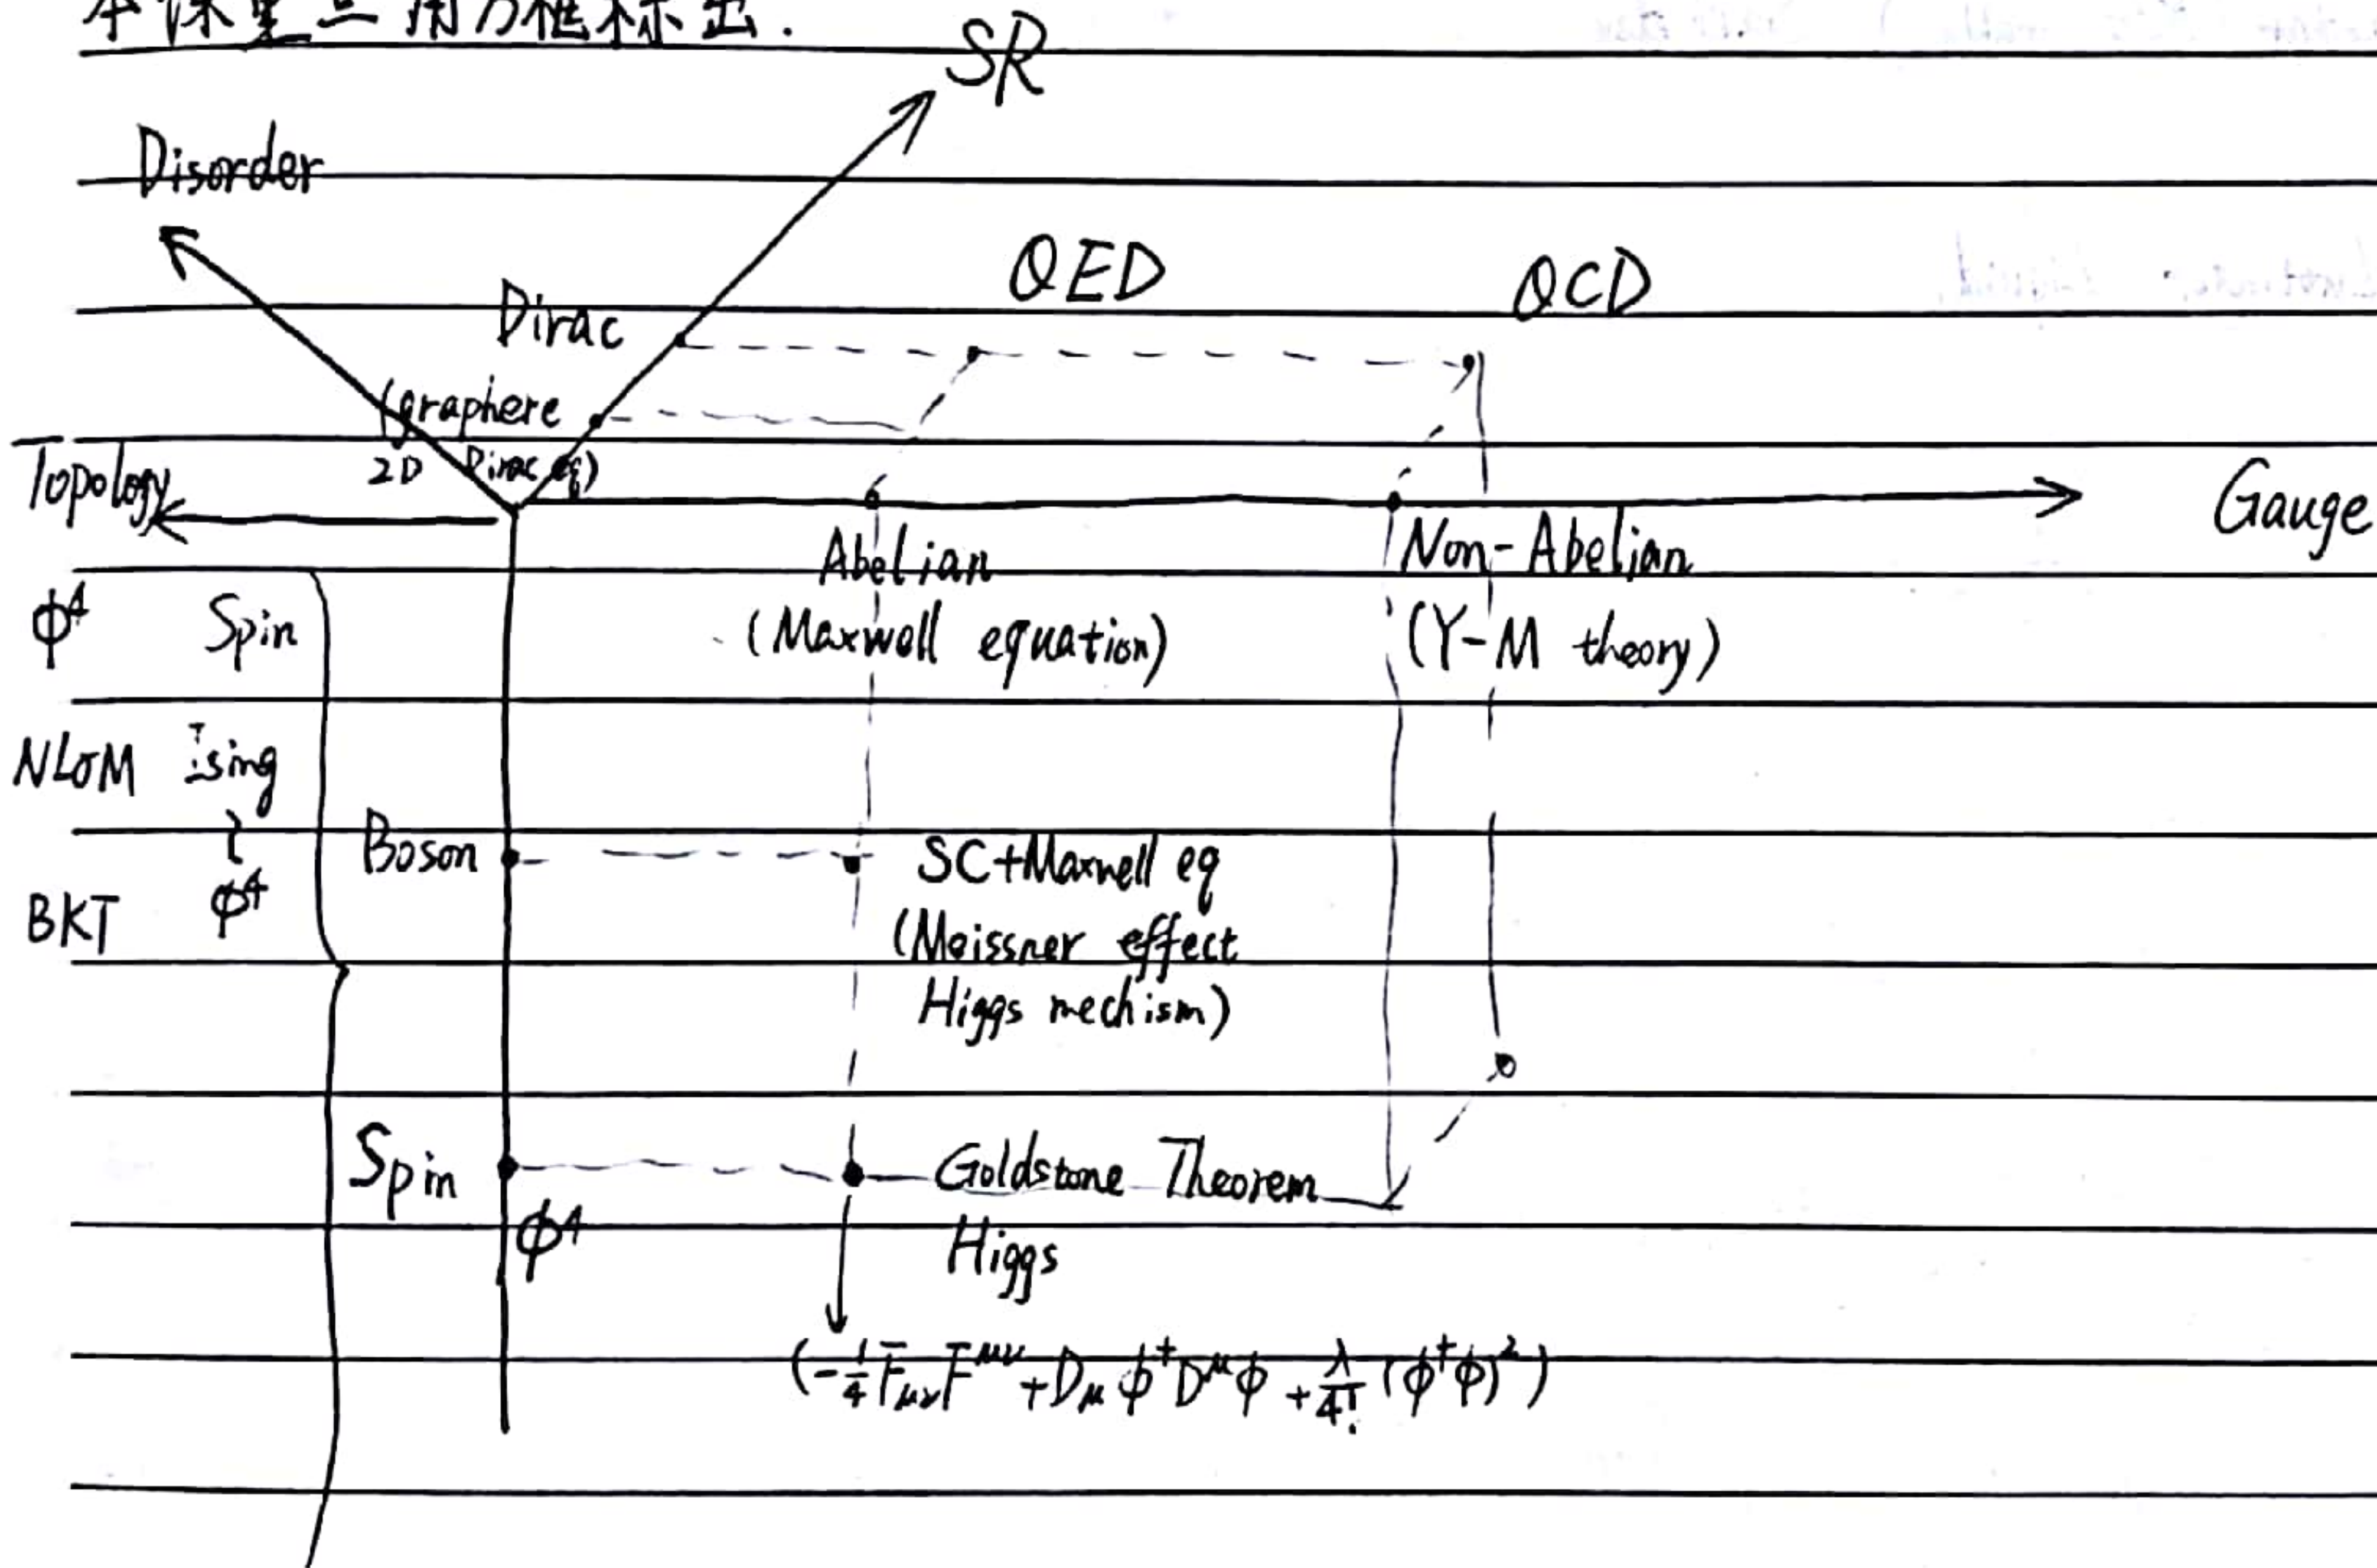 本课重点用方框标出.
SR
Disorder
QED
QCD
Dirac
(graphere
2D Dirac eq)
Topology
Gauge
Abelian
Non-Abelian
(Maxwell equation)
(Y-M theory)
ϕ⁴ Spin
NLσM Ising
BKT ϕ⁴
Boson
SC+Maxwell eq
(Meissner effect
Higgs mechism)
Spin
ϕ⁴
Goldstone Theorem
Higgs
(-1/4 F_μν F^μν + D_μ ϕ^† D^μ ϕ + λ/4! (ϕ^† ϕ)^2)